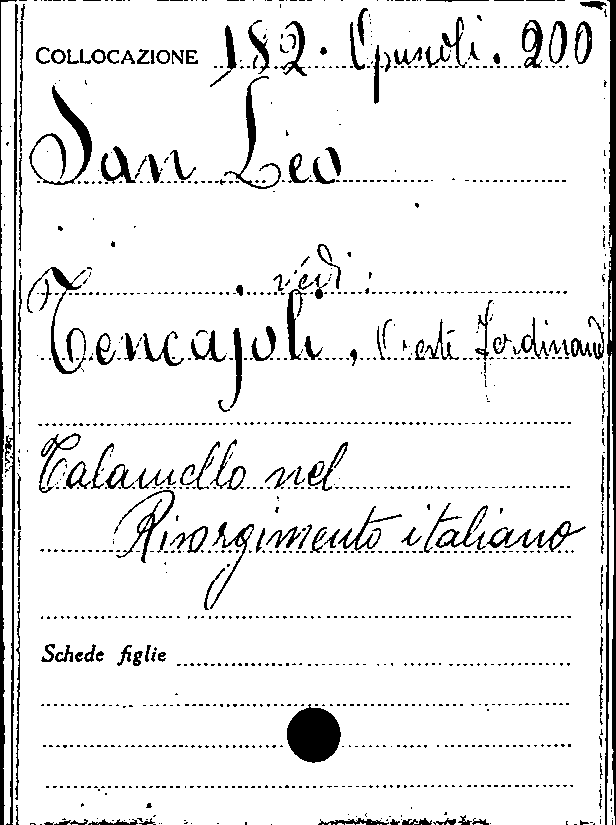 COLLOCAZIONE 182. Opuscoli. 200
San Leo
vedi:
Tencajoli, Oreste Ferdinando
Talamello nel
Risorgimento italiano
Schede figlie